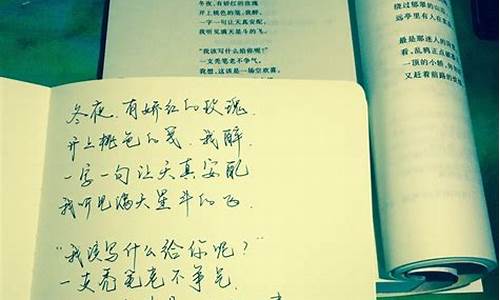 冬夜，有娇红的玫瑰
开上桃色的笺，我醉，
一字一句让天真安配，
我听见满天星斗的飞。
“我该写什么给你呢？”
一支秃笔老不争气，
我想，这该是一场空欢喜，
绕过郁翠的山
远亭里有人在
最是那迷人的
看，乱鸦正点
一顶的小轿，
又赶着前路的
冬夜，有娇红的玫瑰，
开上桃色的笺，我醉，
一字一句让天真安配
我听见满天星斗的飞．
“我该写什么给你呢？”
一支秃笔老不争气．